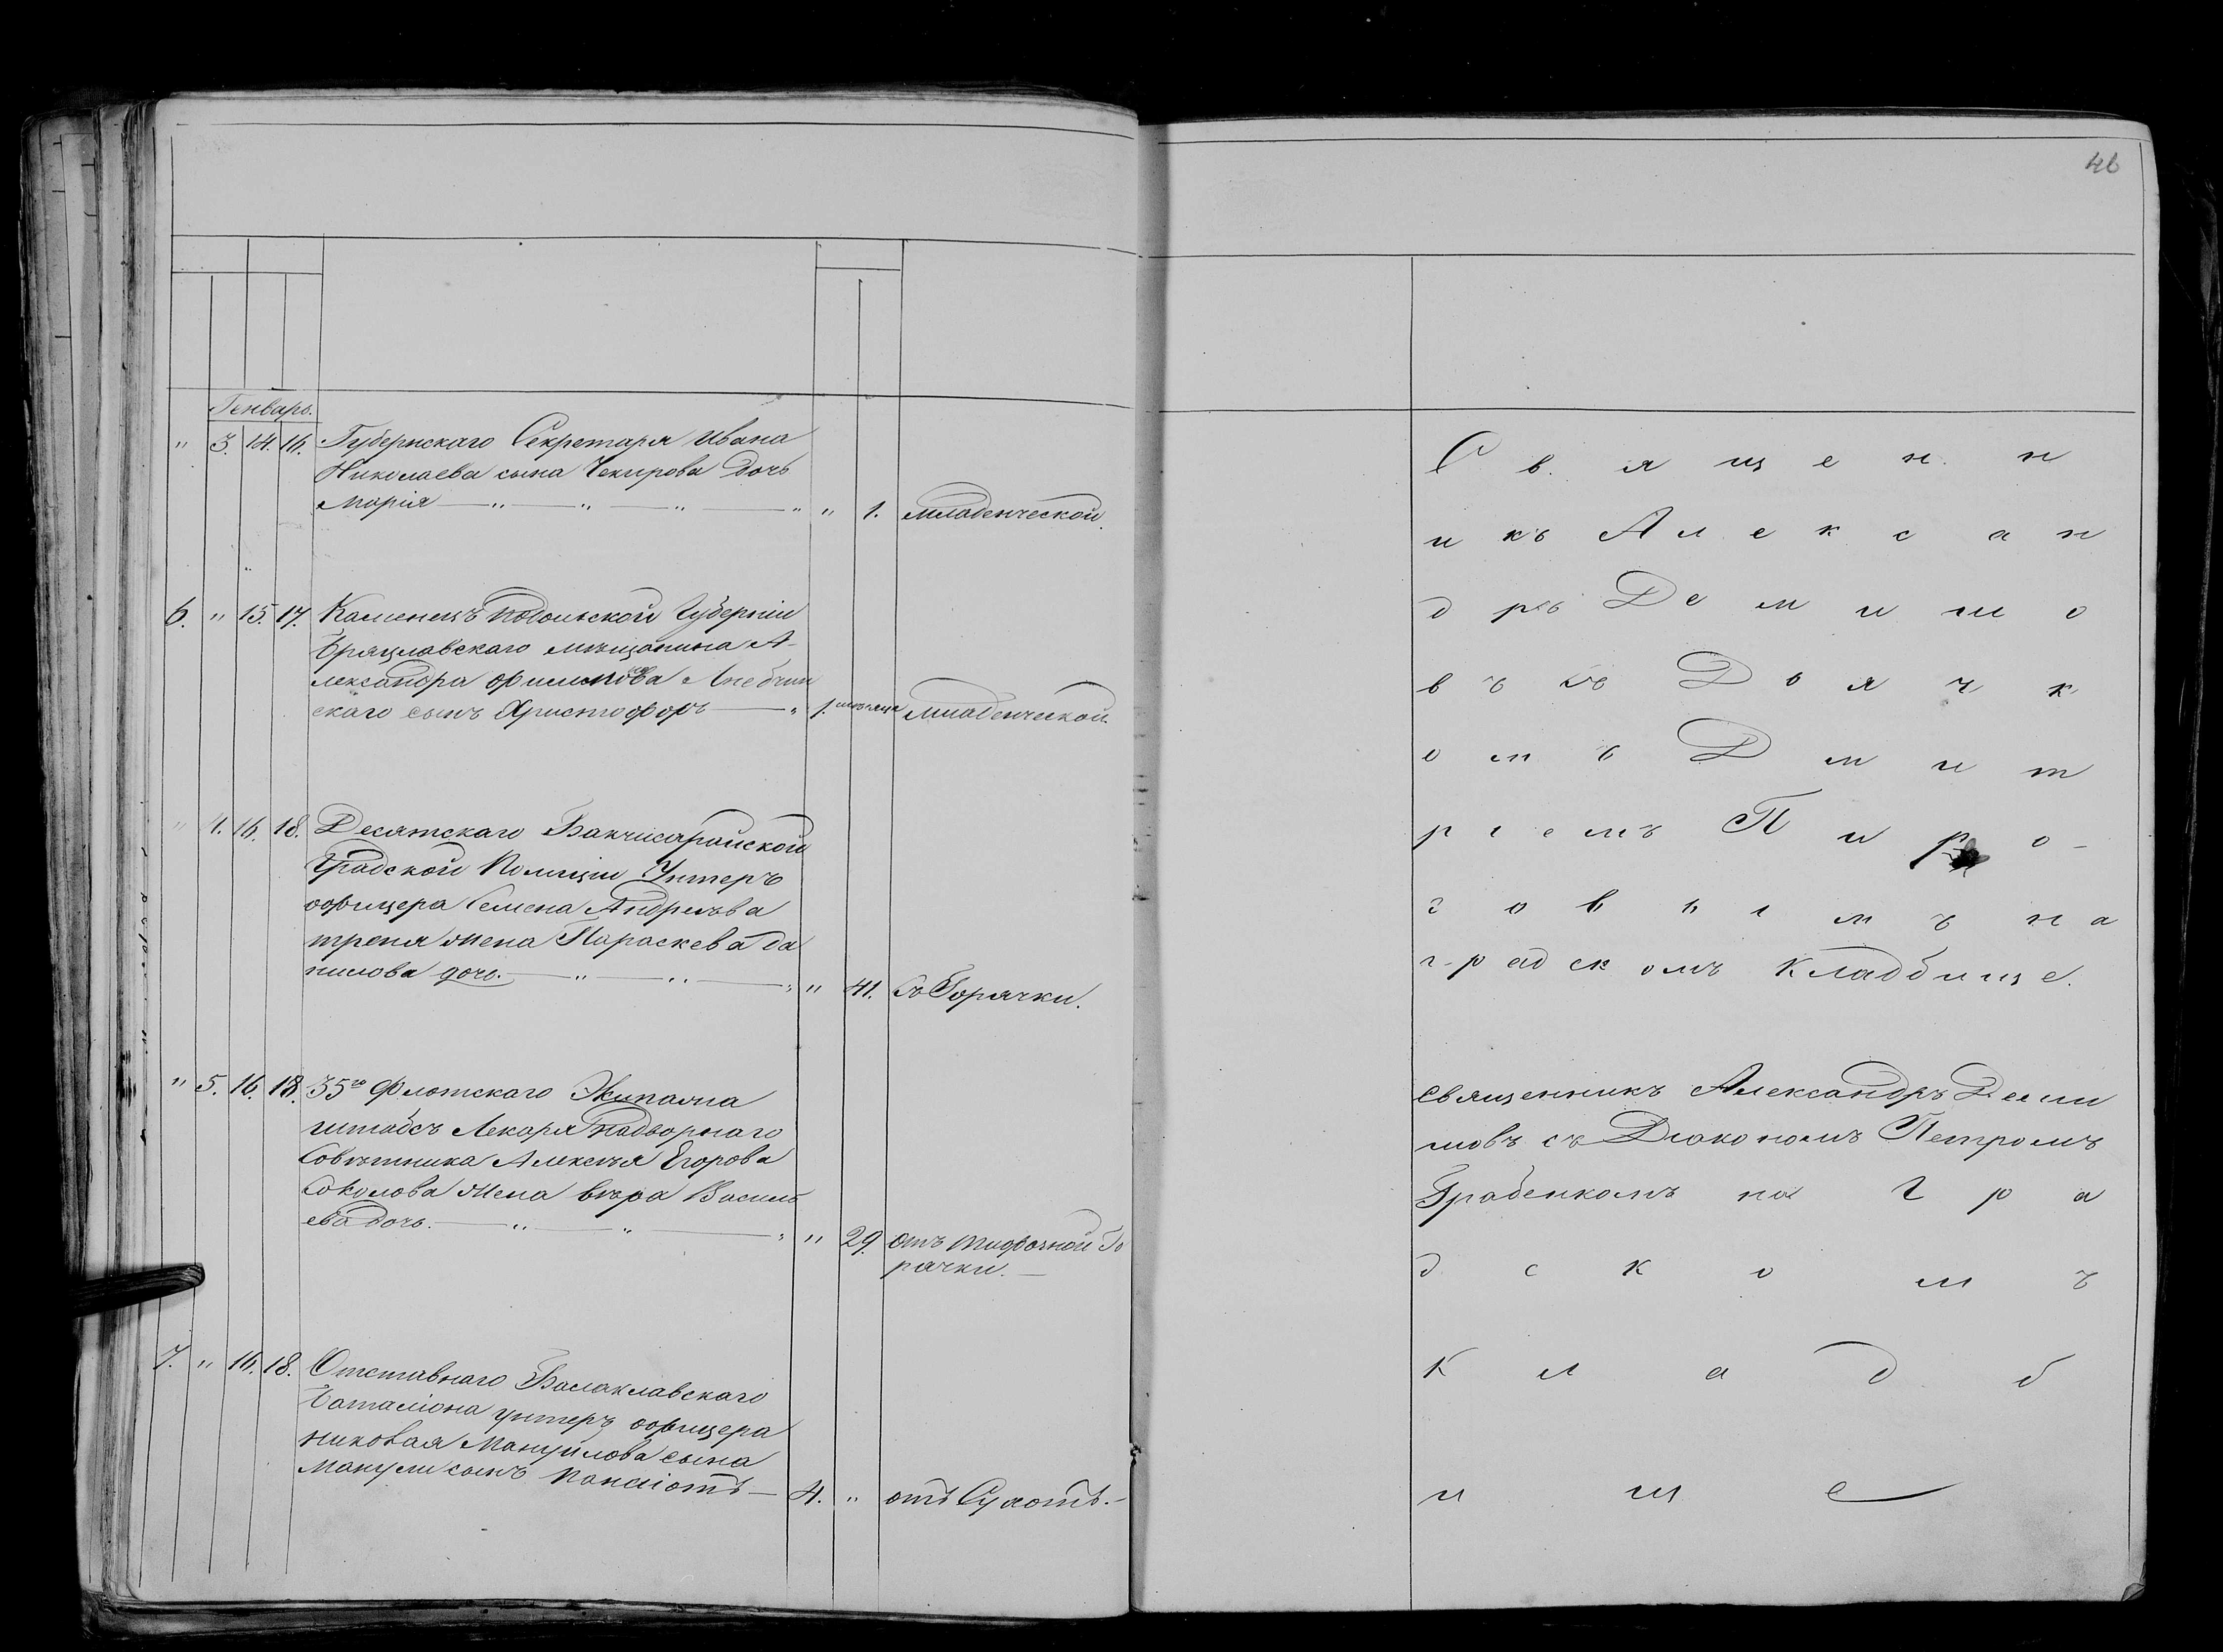 46
Генварь.
" 3. 14. 16. Губернскаго Секретаря Ивана
Николаева сына Чекирова дочь
Марія — " — " — " — " " 1. младенческой.
6. " 15. 17. Каменецъ Подольской Губерніи
Брацлавскаго мещанина А-
лександра
скаго сынъ Христофоръ — " 1. месяца младенческой.
" 4. 16. 18. Десятскаго Бакчисарайской
Градской Полиціи Унтеръ
офицера Семена Андреева
жена Параскева Да
нилова дочь. — " — " — " " 41. Съ Горячки.
" 5. 16. 18. 35го Флотскаго Экипажа
штабсъ Лекаря Надворнаго
Советника Алексея Егорова
Соколова жена Вера Василь
ева дочь. — " — " — " " 29. отъ тифозной Го
рячки. —
7. " 16. 18. Отставнаго Балаклавскаго
Баталіона унтеръ офицера
Николая Мануйлова сына
Манули сынъ Панаіотъ — 4. " отъ Сухотъ. —
Священн
икъ Алексан
дръ Демишо
въ съ Дьячк
омъ Дмит
ріемъ Пиро-
говымъ на
градскомъ Кладбище.
священникъ Александръ Деми
шовъ съ Діакономъ Петромъ
Грабенкомъ на Гра
дскомъ
Кладб
ище